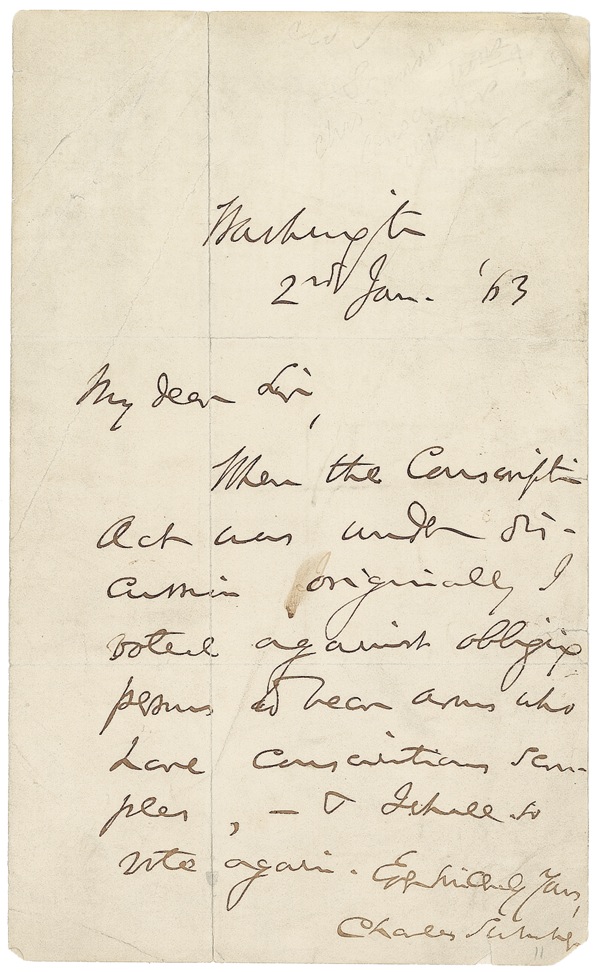 Washington
2nd Jan. '63
My dear Sir,
When the Conscription
Act was under dis-
cussion originally I
voted against obliging
persons to bear arms who
have conscientious scru-
ples, — & I shall so
vote again.
Faithfully Yours,
Charles Sumner